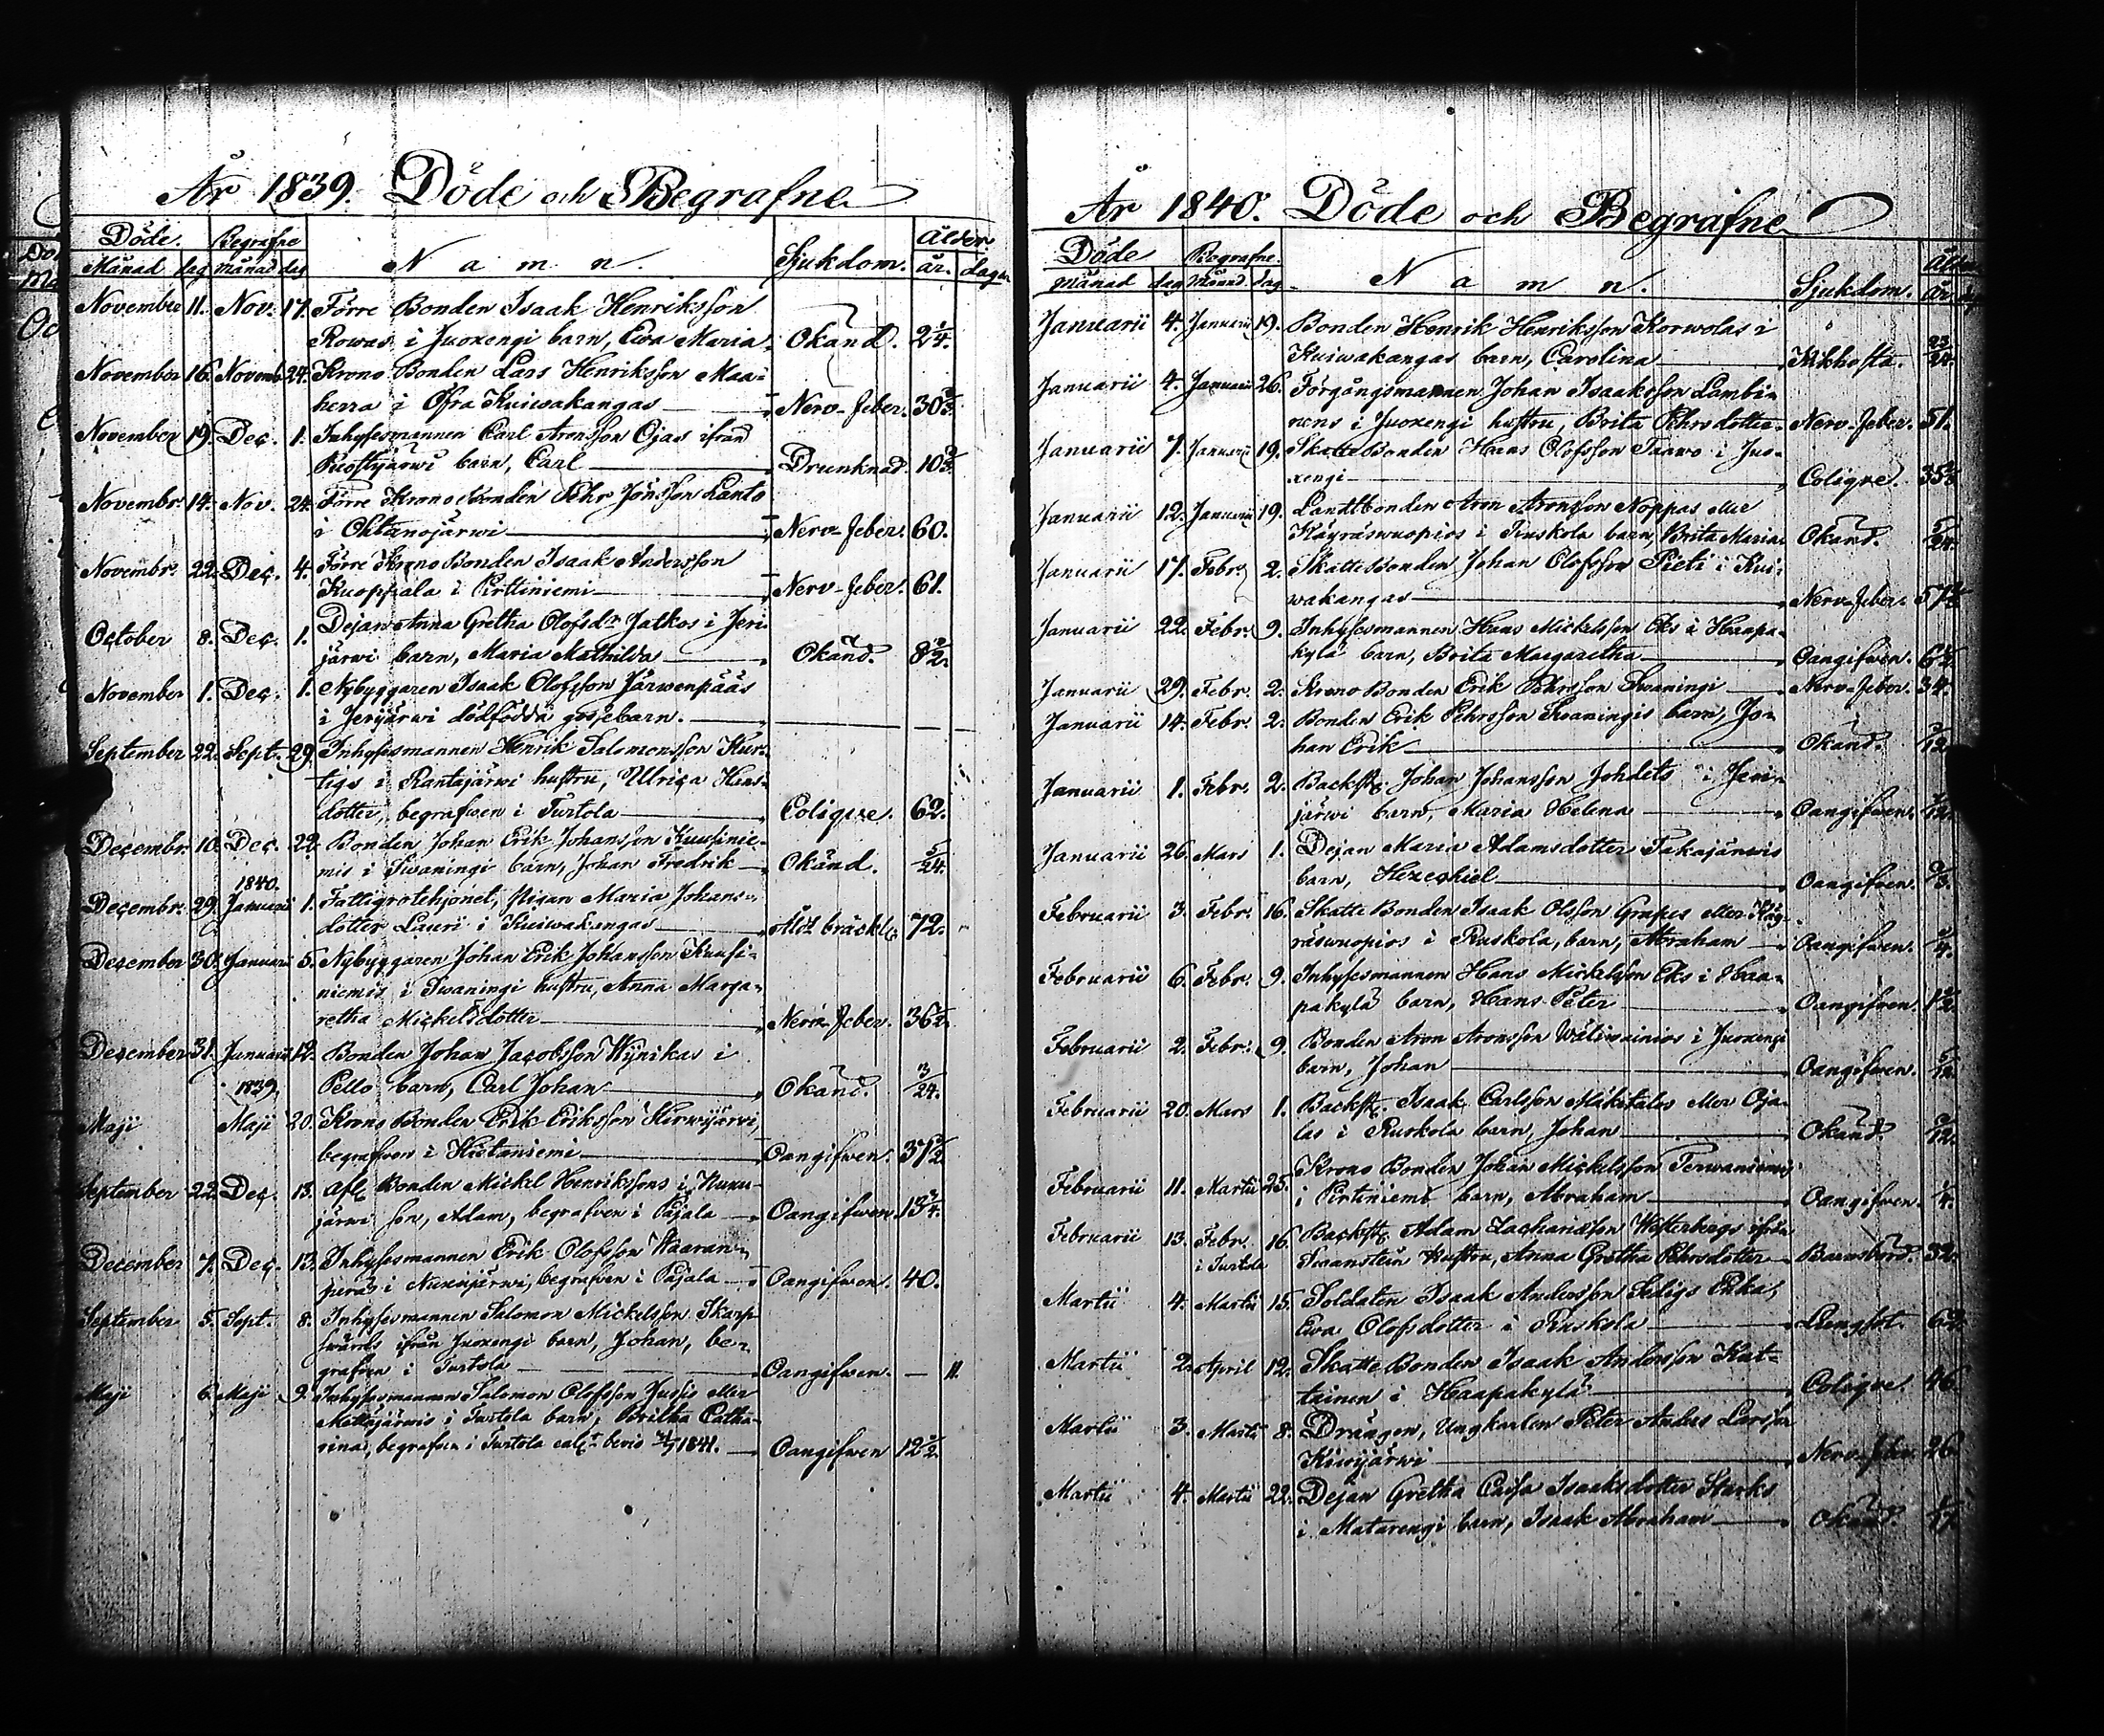 År 1839. Döde och Begrafne
Döde. Begrafne Namn. Sjukdom. Ålder.
Månad dag Månad dag år. dagar
November 11. Nov. 17. Förre Bonden Isaak Henriksson
Rowas i Juoxengi barn, Ewa Maria. Okänd. 2 1/4.
November 16. Novemb. 24. Krono Bonden Lars Henriksson Maa-
herra i Öfra Kuiwakangas Nerv-feber. 30
November 19. Dec. 1. Inhysesmannen Carl Aronsson Ojas ifrån
barn, Carl Drunknad. 10
Novembr. 14. Nov. 24. Förre Krono Bonden Pehr Jönsson Lanto
i Nerv-feber. 60.
Novembr. 22. Dec. 4. Förre Krono Bonden Isaak Andersson
Kuoppala i Pirttiniemi Nerv-feber. 61.
October 8. Dec. 1. Dejan Anna Gretha Olofsdr Jatkos i Jeri-
järwi barn, Maria Mathilda Okänd. 8 1/2.
November 1. Dec. 1. Nybyggaren Isaak Olofsson Järwenpääs
i Jerijärwi dödfödda gossebarn.
September 22. Sept. 29. Inhysesmannen Henrik Salomonsson Kur-
tigs i Rantajärwi hustru, Ulrica Hans-
dotter, begrafwen i Turtola Colique. 62.
Decembr. 10. Dec. 22. Bonden Johan Erik Johansson Kuusinie-
mis i Swaningi barn, Johan Fredrik Okänd. /24.
1840.
Decembr. 29. Januarii 1. Fattigrotehjonet, Pigan Maria Johans-
dotter Lauri i Kuiwakangas Åld. bräckl. 72.
December 30. Januarii 5. Nybyggaren Johan Erik Johansson Kuusi-
niemis i Swaningi hustru, Anna Marga-
retha Mickelsdotter Nerv-feber. 36 1/2.
December 31. Januarii 12. Bonden Johan Jacobsson Wynikas i
1839. Pello barn, Carl Johan Okänd. 3/24.
Maji Maji 20. Krono Bonden Erik Eriksson Kirwijärwi,
begrafwen i Hietaniemi Oangifwen. 37 1/2
September 22. Dec. 13. Afl. Bonden Mickel Henrikssons i
järwi son, Adam, begrafven i Pajala Oangifwen. 13 3/4.
December 7. Dec. 13. Inhysesmannen Erik Olofsson Waaran-
perä i begrafven i Pajala Oangifwen. 40.
September 5. Sept. 8. Inhysesmannen Salomon Mickelsson Skarp-
swärds ifrån Juoxengi barn, Johan, be-
grafven i Turtola Oangifwen. — 11.
Maji 6. Maji 9. Inhysesmannen Salomon Olofsson Jussis eller
Mettäjärwis i Turtola barn, Britha Catha-
rina, begrafven i Turtola enl. bevis 1841. Oangifwen 12 1/2.
År 1840. Döde och Begrafne
Döde Begrafne. Namn. Sjukdom.
Månad dag Månad dag År
Januarii 4. Januarii 19. Bonden Henrik Henriksson Korwolas i
Kuiwakangas barn, Carolina Kikhosta. 23/24.
Januarii 4. Januarii 26. Förgångsmannen Johan Isaaksson Lambi-
nens i Juoxengi hustru, Brita Pehrsdotter Nerv-feber. 51.
Januarii 7. Januarii 19. Skatte Bonden Hans Olofsson Taawo i Juo-
xengi Colique. 35
Januarii 12. Januarii 19. Landtbonden Aron Aronsson Noppas eller
Käyräswuopios i Ruskola barn, Brita Maria. Okänd. 5/24.
Januarii 17. Febr. 2. Skatte Bonden Johan Olofsson Pieti i Kui-
wakangas Nerv-feber. 57
Januarii 22. Febr. 9. Inhysesmannen Hans Mickelsson Eks i Haapa-
kylä barn, Brita Margaretha Oangifwen. 6 1/2.
Januarii 29. Febr. 2. Krono Bonden Erik Pehrsson Swaningi Nerv-feber. 34.
Januarii 14. Febr. 2. Bonden Erik Pehrsson Swaningis barn, Jo-
han Erik Okänd. /12.
Januarii 1. Febr. 2. Backst. Johan Johansson i Jeri-
järwi barn, Maria Helena Oangifwen. /12.
Januarii 26. Mars 1. Dejan Maria Adamsdotter Takajärwis
barn, Hezechiel Oangifwen.
Februarii 3. Febr. 16. Skatte Bonden Isaak Olsson Grapes eller Käy-
räswuopios i Ruskola, barn, Abraham Oangifwen. /4.
Februarii 6. Febr. 9. Inhysesmannen Hans Mickelsson Eks i Haa-
pakylä barn, Hans Peter Oangifwen. 1 1/2.
Februarii 2. Febr. 9. Bonden Aron Aronsson Wäliwainios i Juoxengi
barn, Johan Oangifwen. /12.
Februarii 20. Mars 1. Backst. Isaak Carlsson Mäkitalos eller Oja-
las i Ruskola barn, Johan Okänd. /12.
Februarii 11. Martii 25. Krono Bonden Johan Mickelsson Terwaniemi
i Pirtiniemi barn, Abraham Oangifwen. /4.
Februarii 13. Febr. 16. Backst. Adam Zachariasson Westerbergs ifrån
i Turtola Swanstein hustru, Anna Gretha Pehrsdotter Barnsbörd. 32.
Martii 4. Martii 15. Soldaten Isaak Andersson Seligs Enka,
Ewa Olofsdotter i Ruskola Lungsot. 62.
Martii 2. April 12. Skatte Bonden Isaak Andersson Kut-
tainen i Haapakylä Colique. 46
Martii 3. Martii 8. Drängen, Ungkarlen Peter Anders Larsson
Kiwijärwi Nerv-feber 26.
Martii 4. Martii 22. Dejan Gretha Caisa Isaaksdotter Starks
i Matarengi barn, Isaak Abraham Okänd